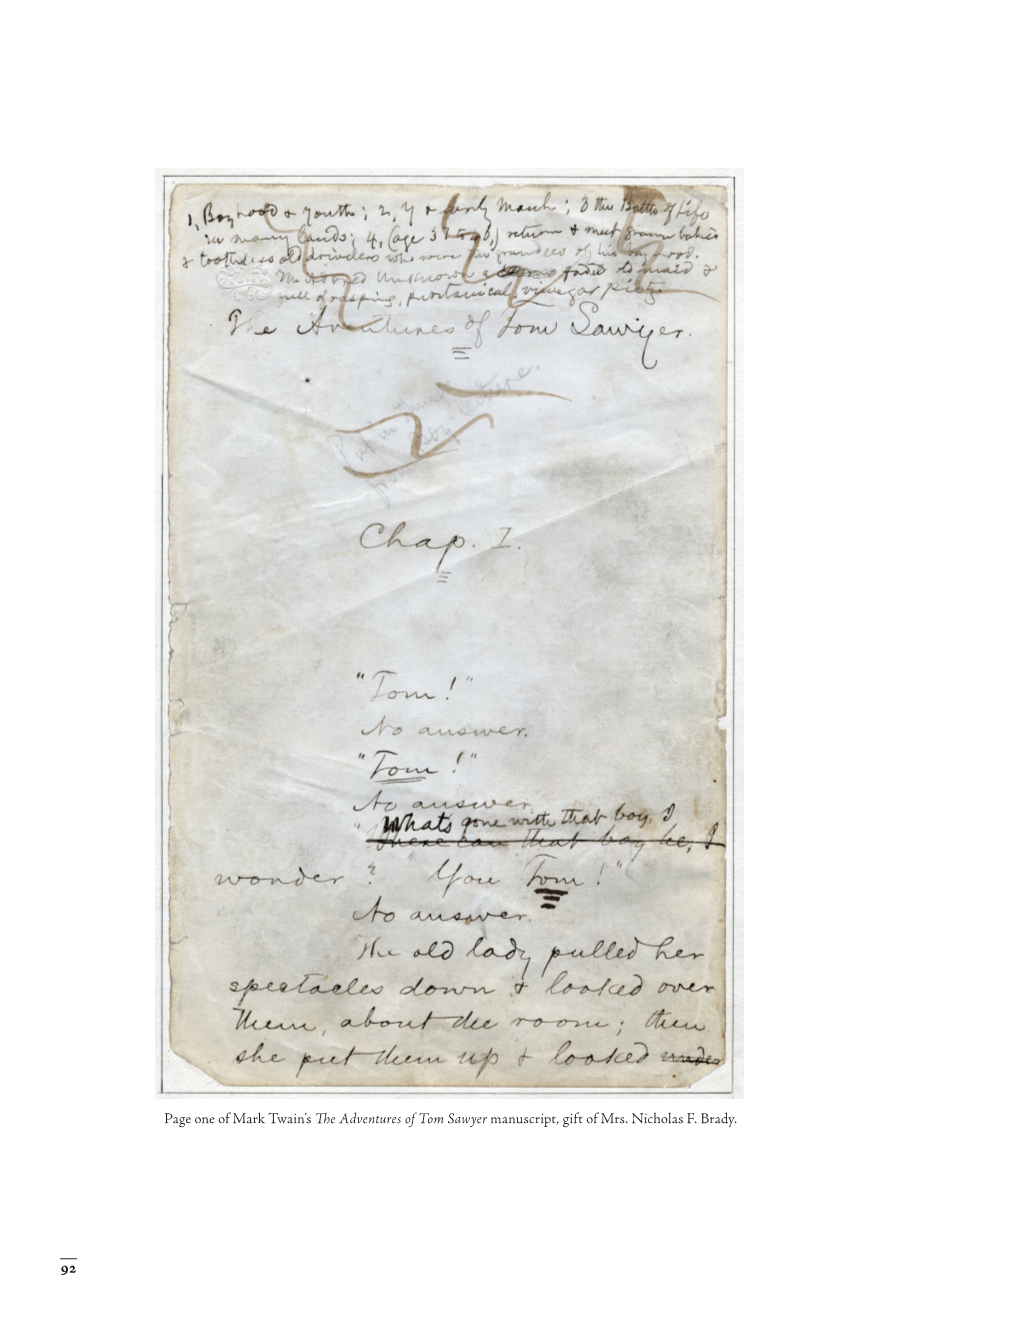 1, Boyhood & youth; 2, y & early manh; 3 the Battle of Life
in many lands; 4, (age 37 to 40,) return & meet grown babies
& toothless old drivelers who were the grandees of his boyhood.
The Adored Unknown a faded old maid &
full of rasping, puritanical, vinegar piety.
The Aventures of Tom Sawyer.
Put in
Chap. I.
"Tom!"
No answer.
"Tom!"
No answer.
What's gone with that boy, I
"Where can that boy be, I
wonder? You Tom!"
No answer.
The old lady pulled her
spectacles down & looked over
them, about the room; then
she put them up & looked under
Page one of Mark Twain's The Adventures of Tom Sawyer manuscript, gift of Mrs. Nicholas F. Brady.
92